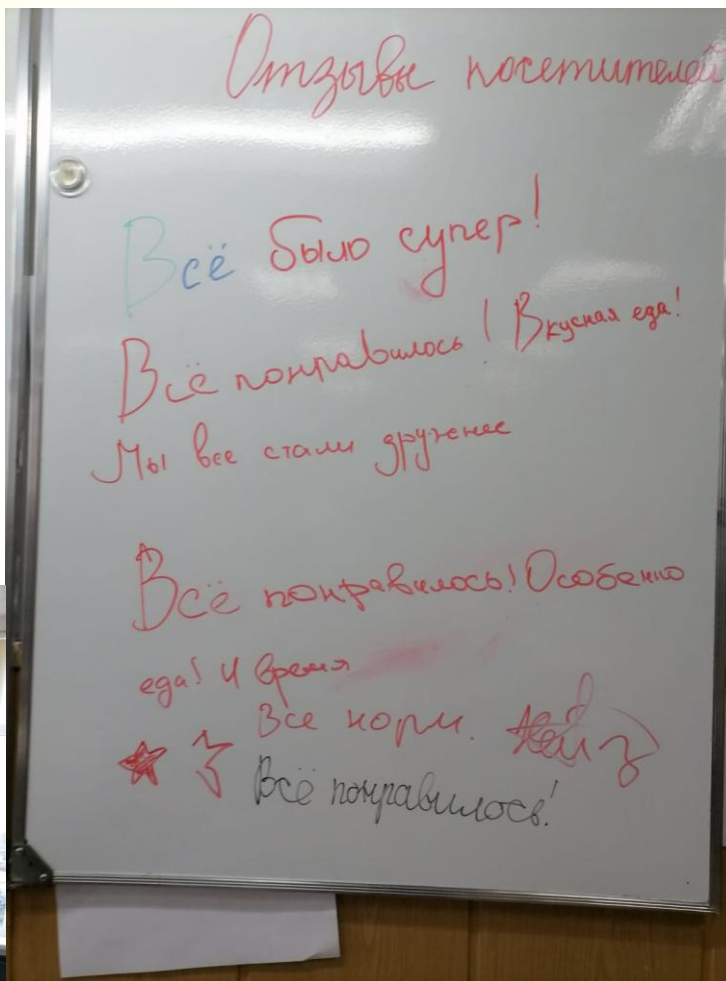 Отзывы посетителей
Всё было супер!
Всё понравилось! Вкусная еда!
Мы все стали дружнее
Всё понравилось! Особенно
еда! И время
Все норм.
Всё понравилось!